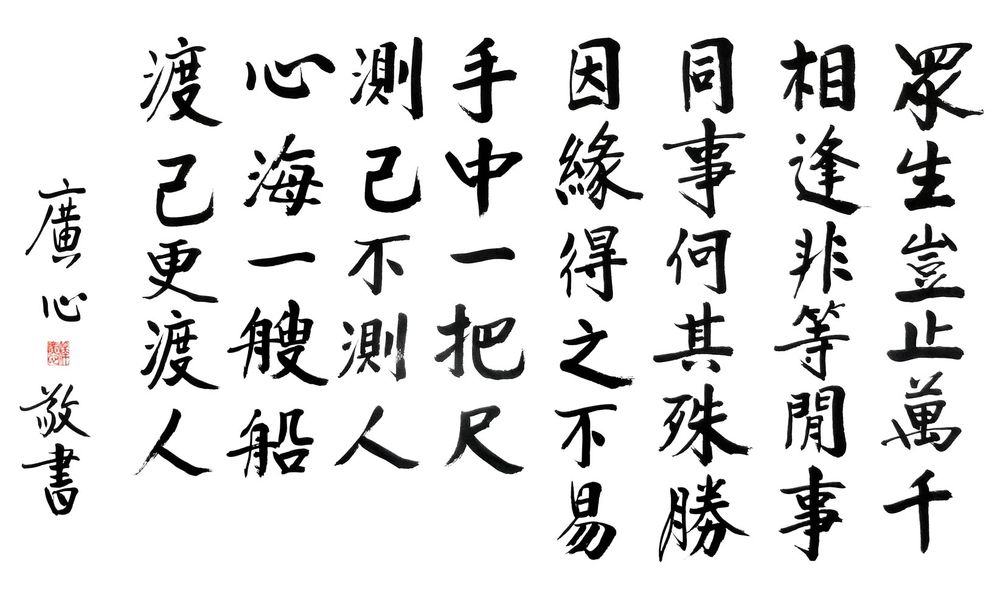 眾生豈止萬千
相逢非等閒事
同事何其殊勝
因緣得之不易
手中一把尺
測己不測人
心海一艘船
渡己更渡人
廣心 敬書